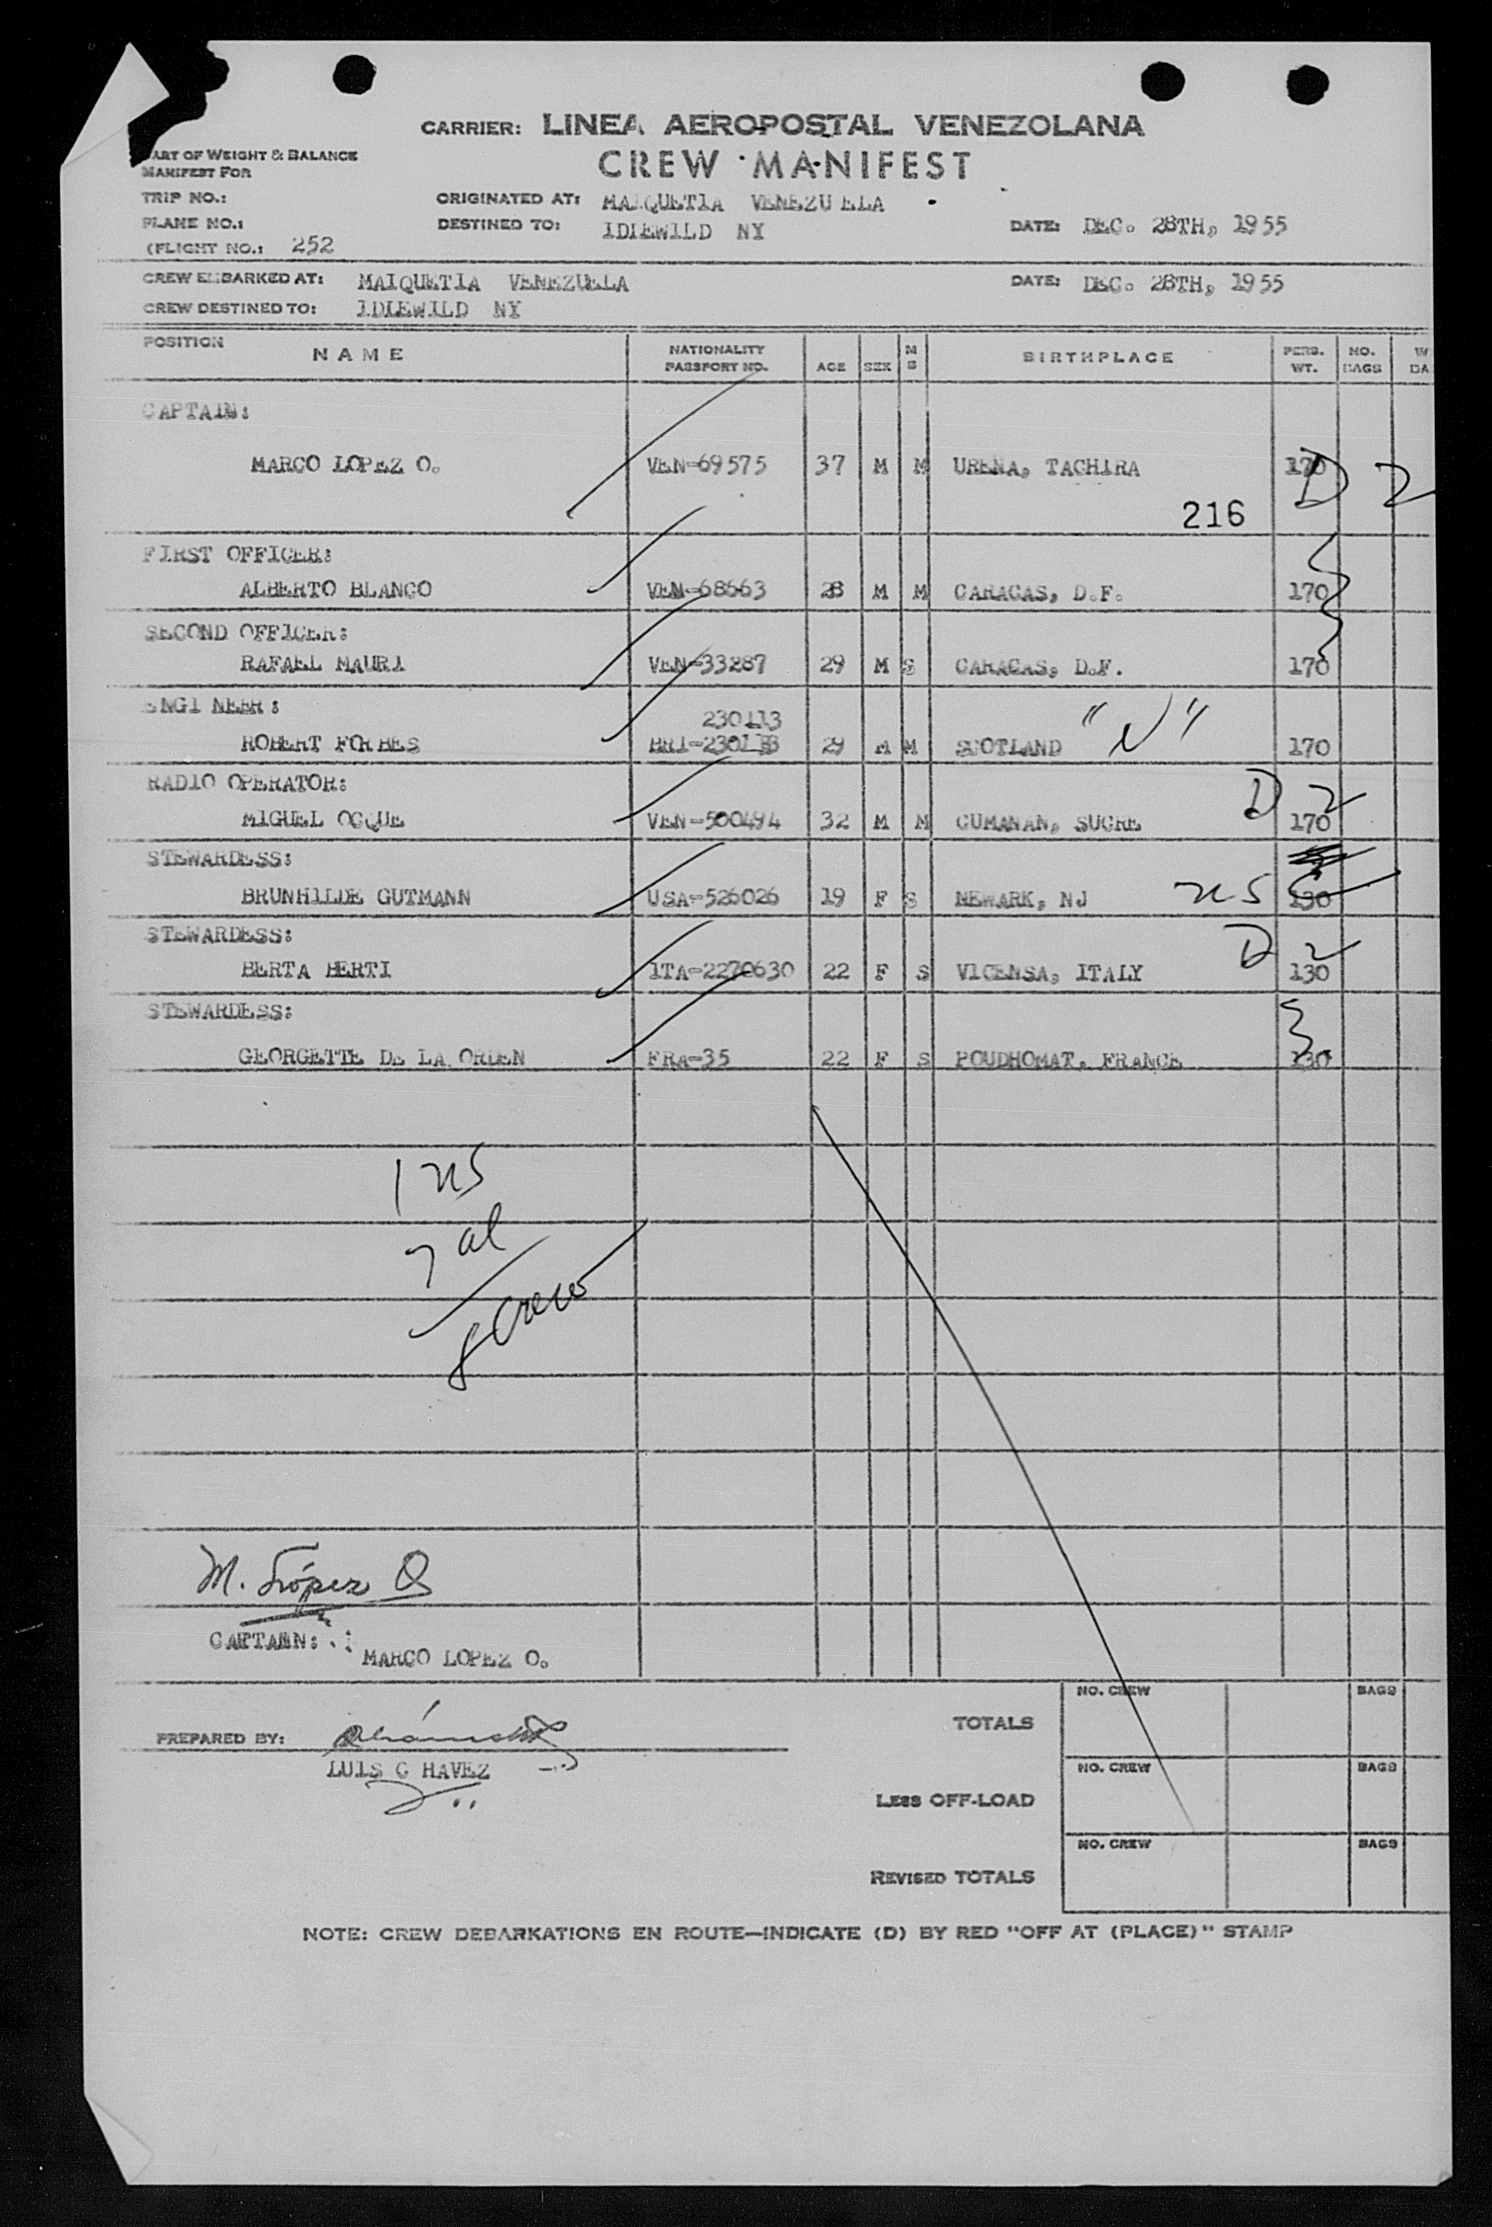 CARRIER: LINEA AEROPOSTAL VENEZOLANA
PART OF WEIGHT & BALANCE
MANIFEST FOR
CREW MANIFEST
TRIP NO.:
ORIGINATED AT: MAIQUETIA VENEZUELA
PLANE NO.:
DESTINED TO: IDIEWILD NY
DATE: DEC. 28TH, 1955
(FLIGHT NO.: 252
CREW EMBARKED AT: MAIQUETIA VENEZUELA
DATE: DEC. 28TH, 1955
CREW DESTINED TO: IDLEWILD NY
POSITION NAME NATIONALITY PASSPORT NO. AGE SEX M S BIRTHPLACE PERS. WT. NO. BAGS W DA
CAPTAIN:
MARCO LOPEZ O. VEN-69575 37 M M URENA, TACHIRA 170 D 2
216
FIRST OFFICER:
ALBERTO BLANCO VEN-68663 28 M M CARACAS, D.F. 170
SECOND OFFICER:
RAFAEL MAURI VEN-33287 29 M S CARACAS, D.F. 170
ENGINEER:
230113
ROBERT FORBES BRI-230113 29 M M SCOTLAND "N" 170
RADIO OPERATOR:
MIGUEL OCQUE VEN-500494 32 M M CUMANAN, SUCRE D 2 170
STEWARDESS:
BRUNHILDE GUTMANN USA-526026 19 F S NEWARK, NJ US 130
STEWARDESS:
BERTA BERTI ITA-2270630 22 F S VICENSA, ITALY D 2 130
STEWARDESS:
GEORGETTE DE LA ORDEN FRA-35 22 F S POUDHOMAT, FRANCE 130
1 US
7 al
8 Crew
M. López O
CAPTAIN: MARCO LOPEZ O.
NO. CREW BAGS
TOTALS
PREPARED BY:
LUIS C HAVEZ
NO. CREW BAGS
LESS OFF-LOAD
NO. CREW BAGS
REVISED TOTALS
NOTE: CREW DEBARKATIONS EN ROUTE—INDICATE (D) BY RED "OFF AT (PLACE)" STAMP